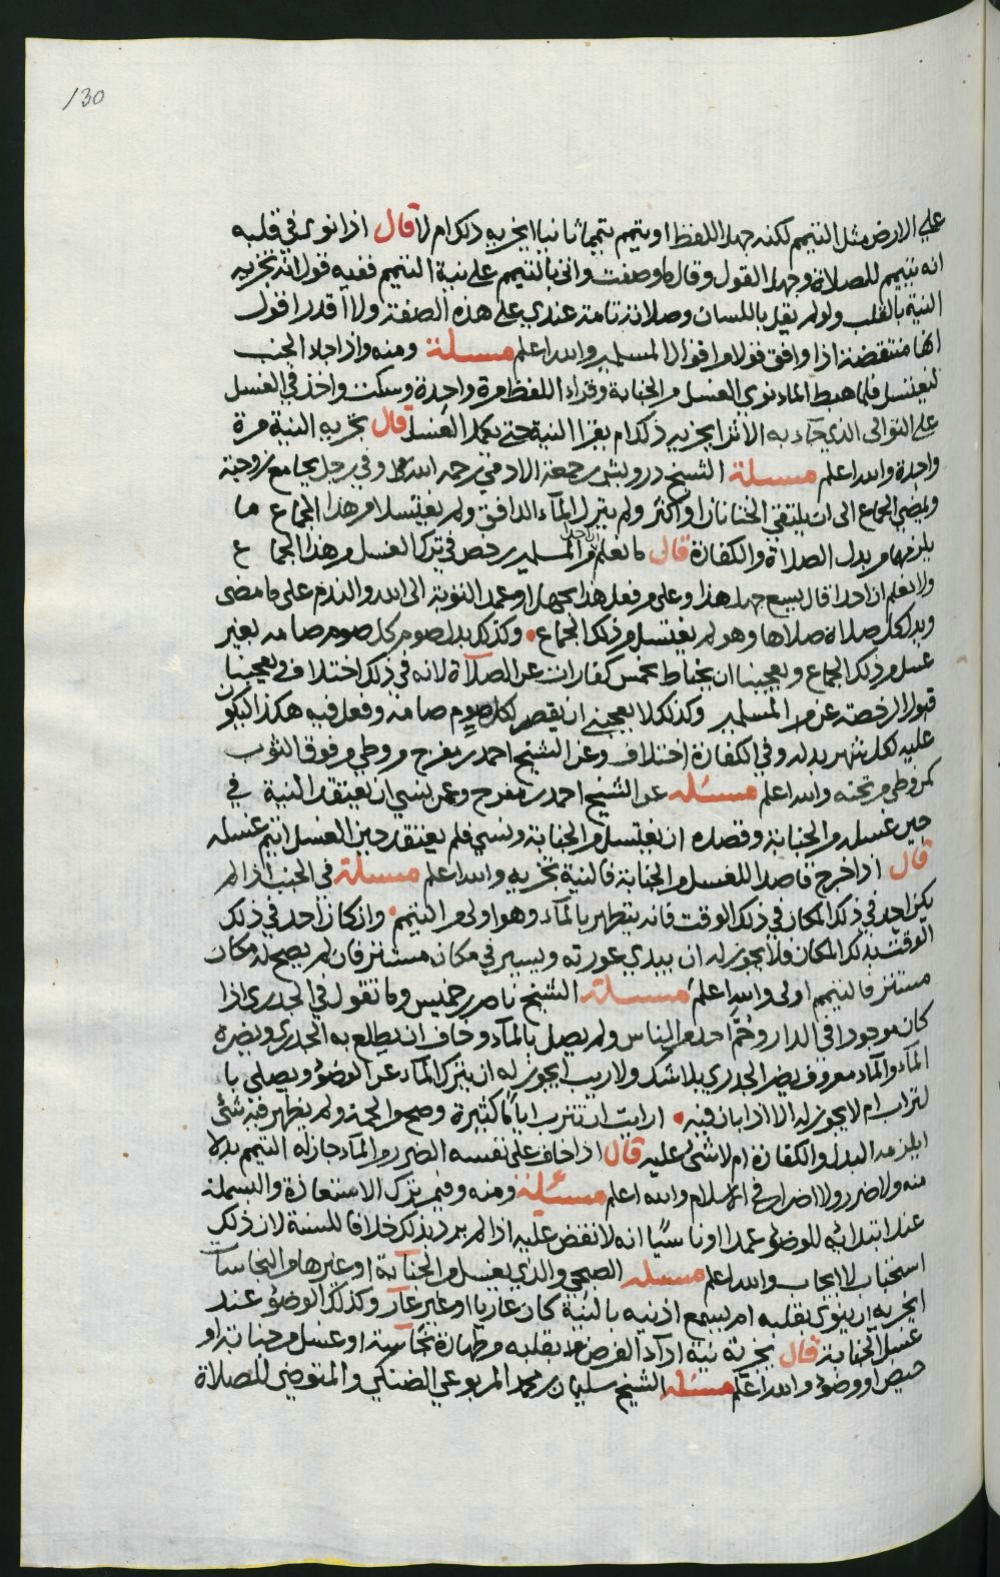 130
على الارض مثل التيمم لكنه جهل اللفظ او يتيمم تيمما ثانيا ايجزيه ذلك ام لا قال اذا نوى في قلبه
انه يتيمم للصلاة وجهل القول وقال كما وصفت واتى بالتيمم على نية التيمم ففيه قول انه تجزيه
النية بالقلب ولو لم يقل باللسان وصلاته تامة عندي على هذه الصفة ولا اقدر اقول
انها منتقضة اذا وافق قولا من اقوال المسلمين والله اعلم مسئلة ومنه واذا جاء الجنب
ليغتسل فلما هبط الماء نوى الغسل من الجنابة وقراء اللفظ مرة واحدة وسكت واخذ في الغسل
على التوالى الذي جاء به الاثر ايجزيه ذلك ام يقرا النية حتى يكمل الغسل قال تجزيه النية مرة
واحدة والله اعلم مسئلة الشيخ درويش بن جمعة الادمي رحمه الله وفي رجل يجامع زوجته
ويمضي الجماع الى ان يلتقي الختانان او اكثر ولم ينزل الماء الدافق ولم يغتسلا من هذا الجماع ما
يلزمهما من بدل الصلاة والكفارة قال لا نعلم احدا من المسلمين رخص في ترك الغسل من هذا الجماع
ولا نعلم ان احدا قال يسع جهل هذا وعلى من فعل هذا بجهل او عمد التوبة الى الله والندم على ما مضى
وبدل كل صلاة صلاها وهو لم يغتسل من ذلك الجماع وكذلك بدل صوم كل صوم صامه بغير
غسل من ذلك الجماع ويعجبنا ان يحتاط بخمس كفارات عن الصلاة لانه في ذلك اختلاف ويعجبنا
قبول الرخصة عن المسلمين وكذلك لا يعجبني ان يقصر لكل يوم صامه وفعل فيه هكذا ليكون
عليه لكل شهر بدله وفي الكفارة اختلاف وعن الشيخ احمد بن مفرح من وطي من فوق الثوب
كمن وطي من تحته والله اعلم مسئله عن الشيخ احمد بن مفرح وعمن نسي ان يعتقد النية في
حين غسله من الجنابة وقصده ان يغتسل من الجنابة ونسي فلم يعتقد حين الغسل ايتم غسله
قال اذا خرج قاصدا للغسل من الجنابة فالنية تجزيه والله اعلم مسئلة في الجنب اذا لم
يكن احد في ذلك المكان في ذلك الوقت فانه يتطهر بالماء وهو اولى من التيمم وان كان احد في ذلك
الوقت بذلك المكان فلا يجوز له ان يبدي عورته ويسير في مكان مستتر فان لم يصح له مكان
مستتر فالتيمم اولى والله اعلم مسئلة الشيخ ناصر بن خميس وما تقول في الجدري اذا
كان موجودا في الدار وحُمّ احد من الناس ولم يصل بالماء وخاف ان يطلع به الجدري ويضره
الماء والماء معروف يضر الجدري بلا شك ولا ريب ايجوز له ان يترك الماء عن الوضوء ويصلي با
لتراب ام لا يجوز له الا اذا بان فيه ارايت ان تترب اياما كثيرة وصح من الحمة ولم يظهر فيه شئ
ايلزمه البدل والكفارة ام لا شئ عليه قال اذا خاف على نفسه الضرر من الماء جاز له التيمم بدلا
منه ولا ضرر ولا اضرار في الاسلام والله اعلم مسئلة ومنه وفيمن ترك الاستعاذة والبسملة
عند ابتدائه للوضوء عمدا او ناسيًا انه لا نقض عليه اذا لم يرد بذلك خلافا للسنة لان ذلك
استحباب لا ايجاب والله اعلم مسئله الصبحي والذي يغسل من الجنابة او غيرها من النجاسات
ايجزيه ان ينوى بقلبه ام يسمع اذنيه بالنية كان عاريا او غير عار وكذلك الوضوء عند
غسل الجنابة قال تجزئه نية اداء الفرض بقلبه من طهارة نجاسة او غسل من جنابة او
حيض او وضوء والله اعلم مسئله الشيخ سليمان بن محمد المربوعي الضنكي والمتوضي للصلاة